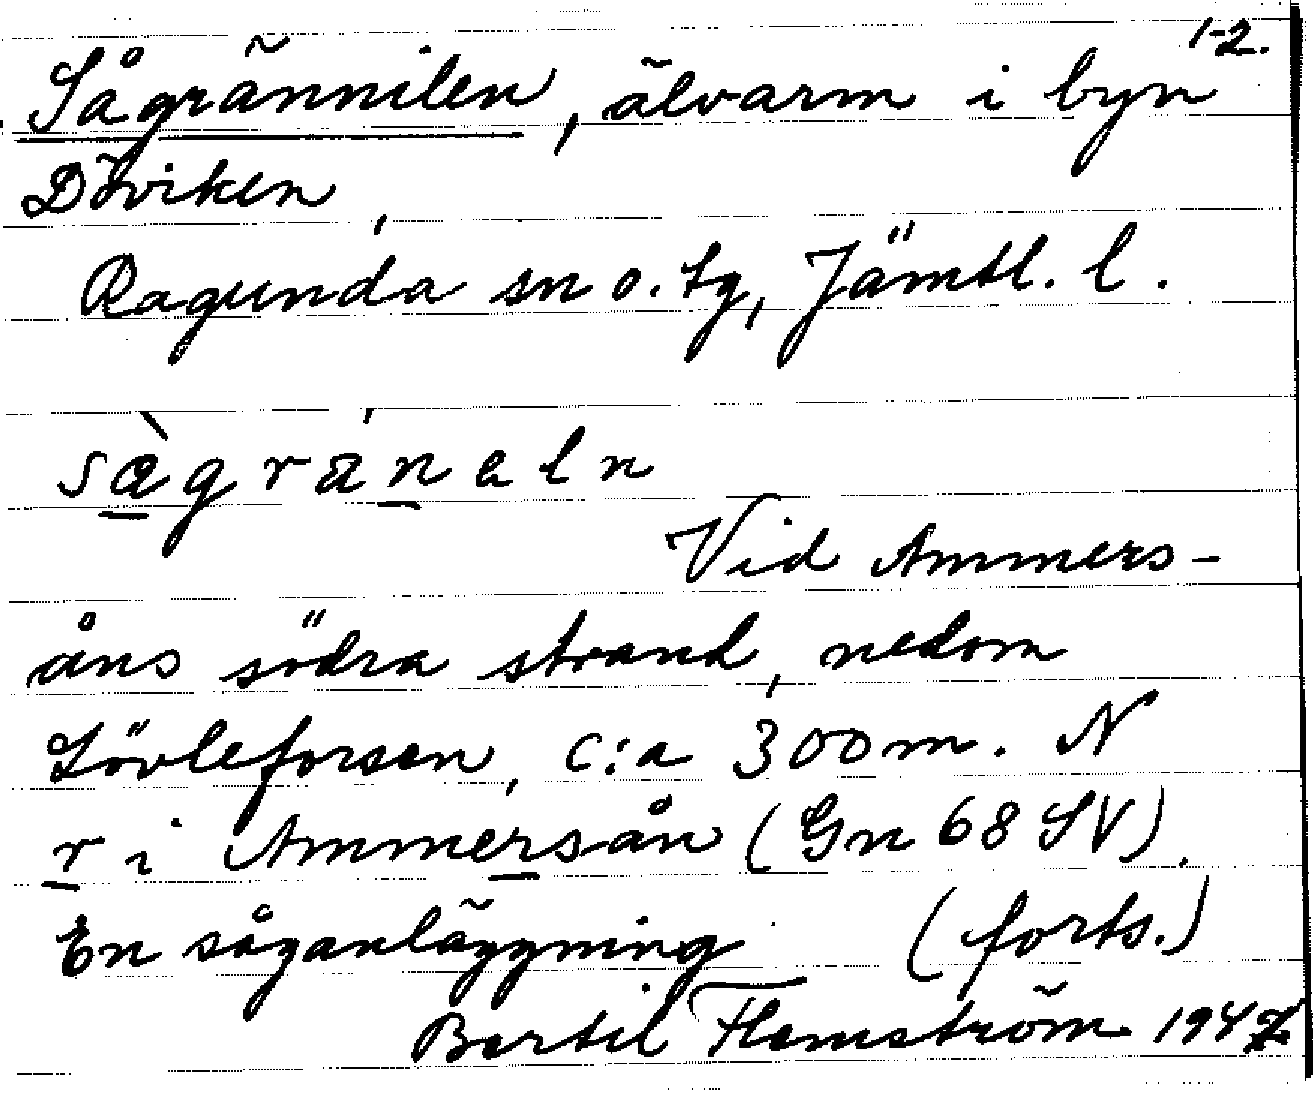 1-2.
Sågrännilen, älvarm i byn
Döviken,
Ragunda sn o. tg, Jämtl. l.
sàgränaln
Vid Ammers-
åns södra strand, nedom
Lövleforsen, c:a 300 m. N
r i Ammersån (Gn 68 SV).
En såganläggning (forts.)
Bertil Flemström 1947